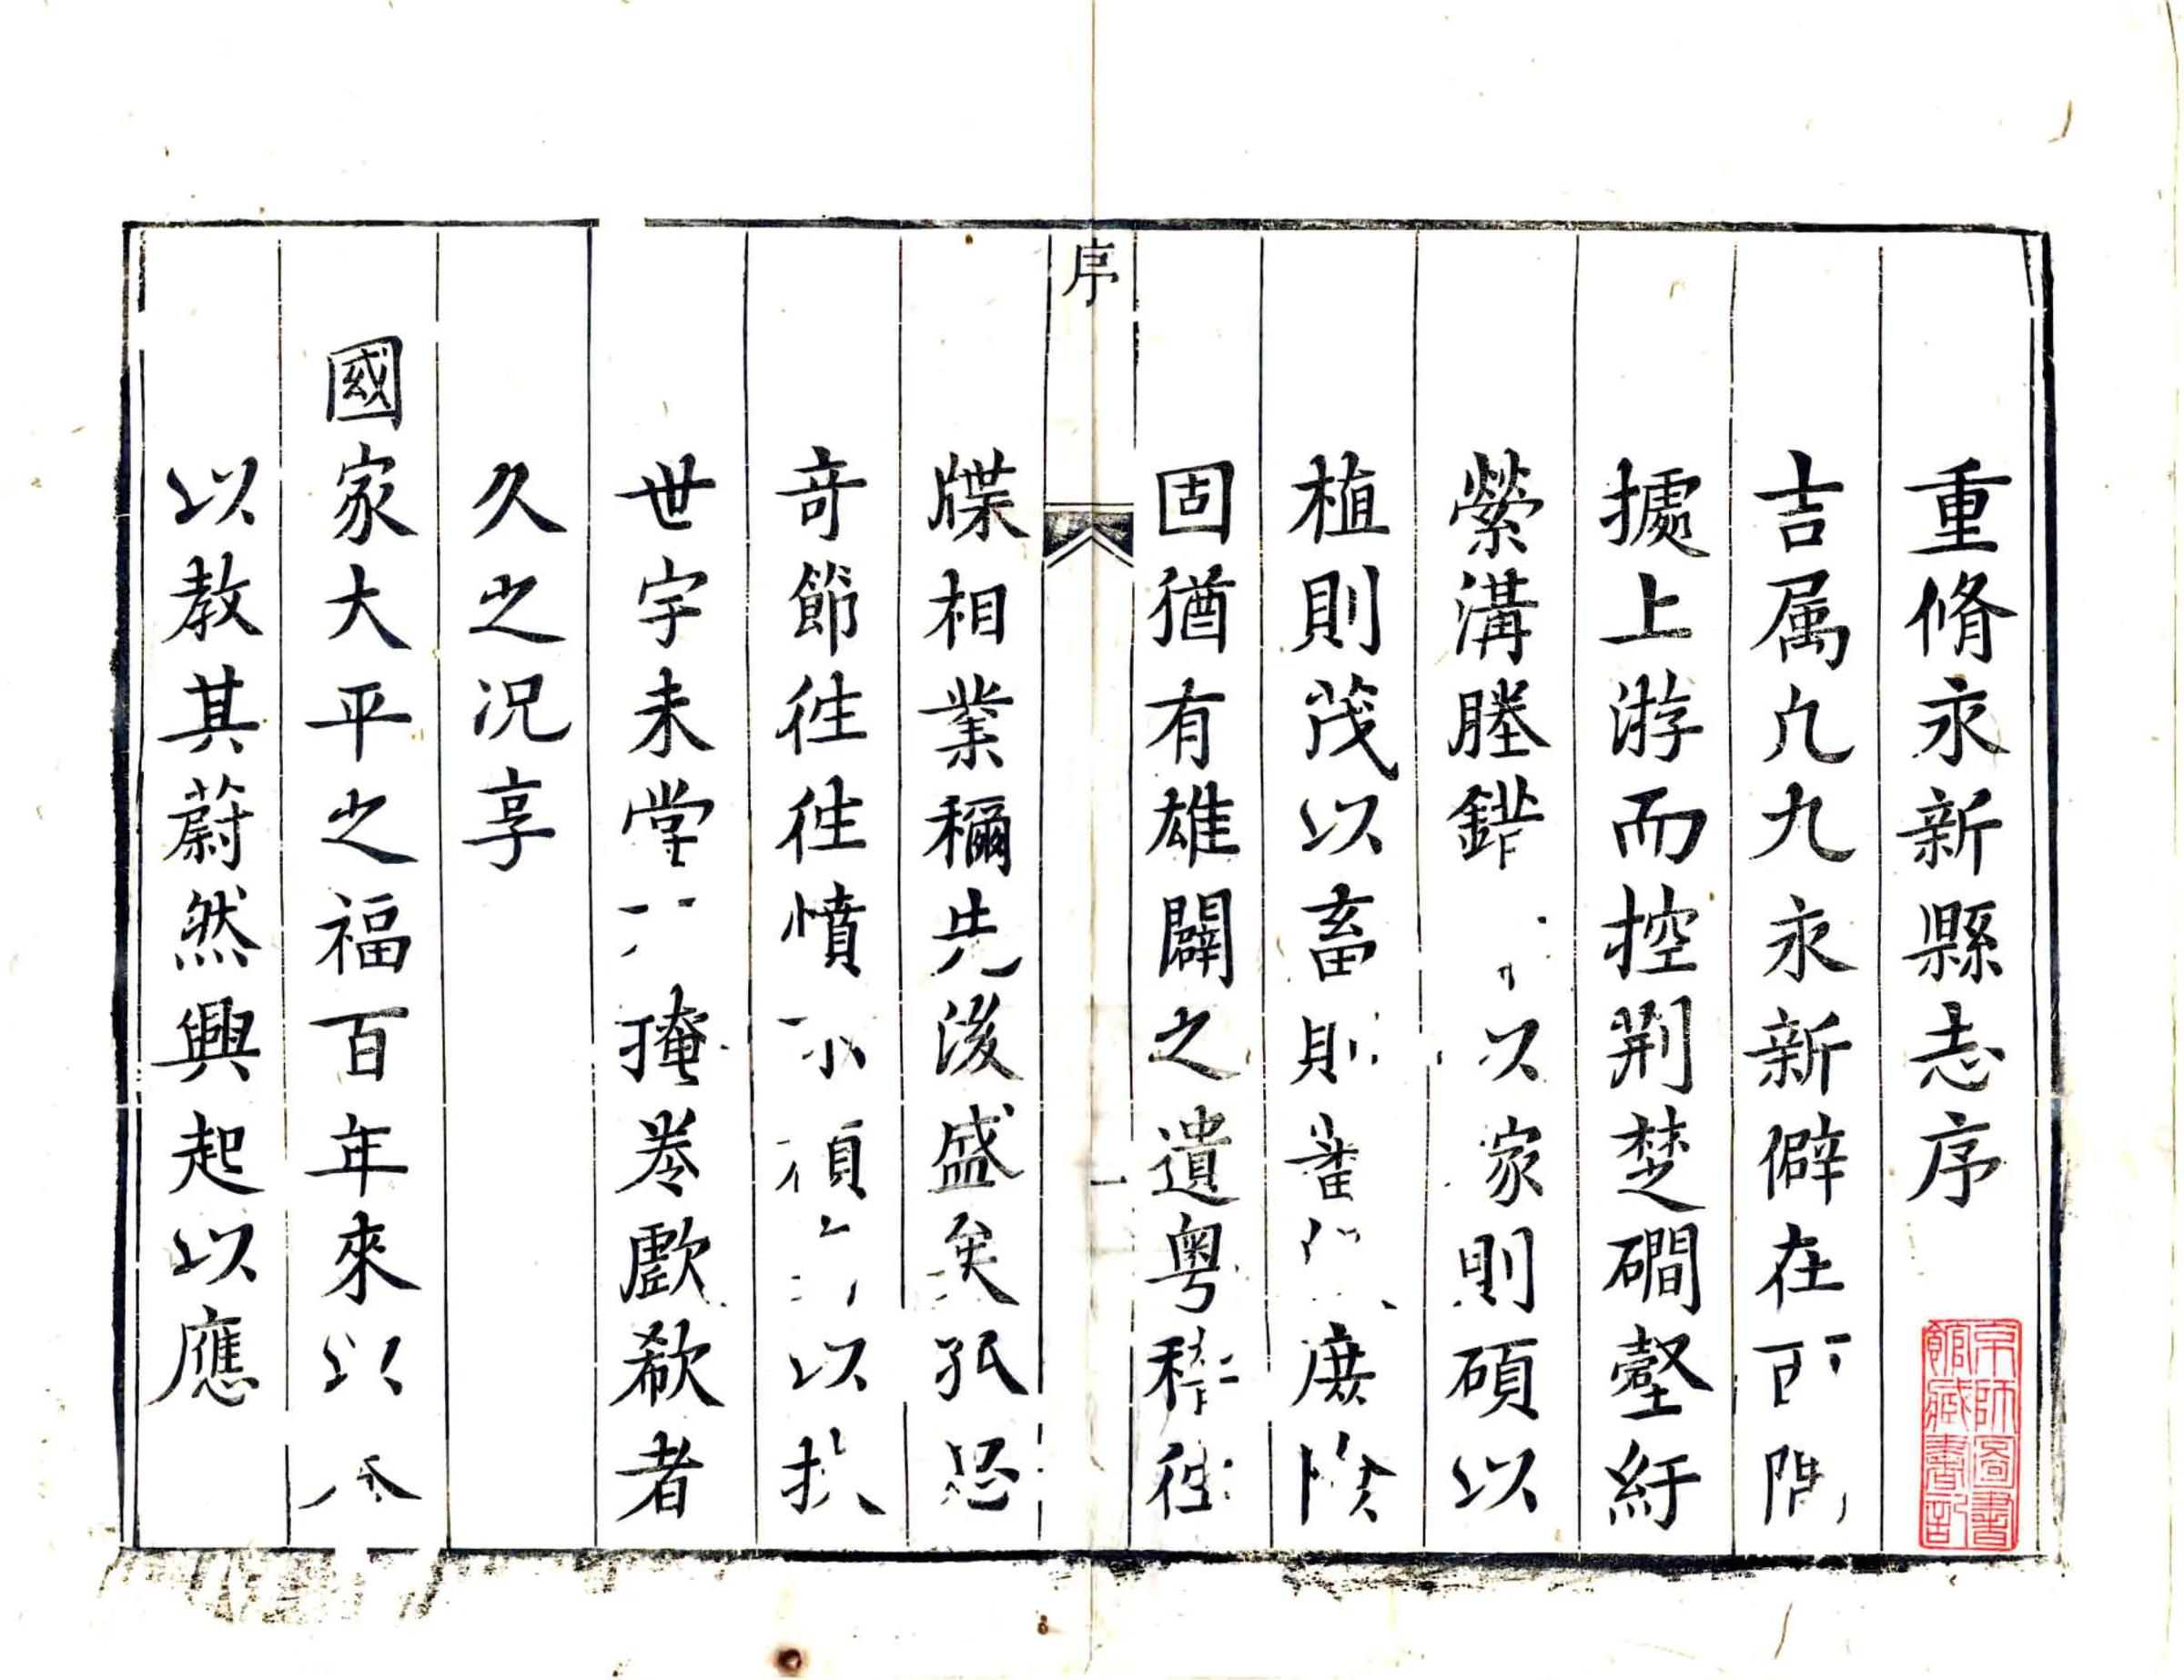 重脩永新縣志序
京師圖書館藏書記
吉属凢九永新僻在西
㨿上游而控荆楚磵壑紆
縈溝塍錯以家則碩以
植則茂以畜則蕃
固猶有雄闢之遺粤稽往
序
一
牒相業稱先後盛矣孤忠
竒節徃徃憤以
世宇未堂掩卷歔欷者
久之况享
國家大平之福百年來以
以教其蔚然興起以應